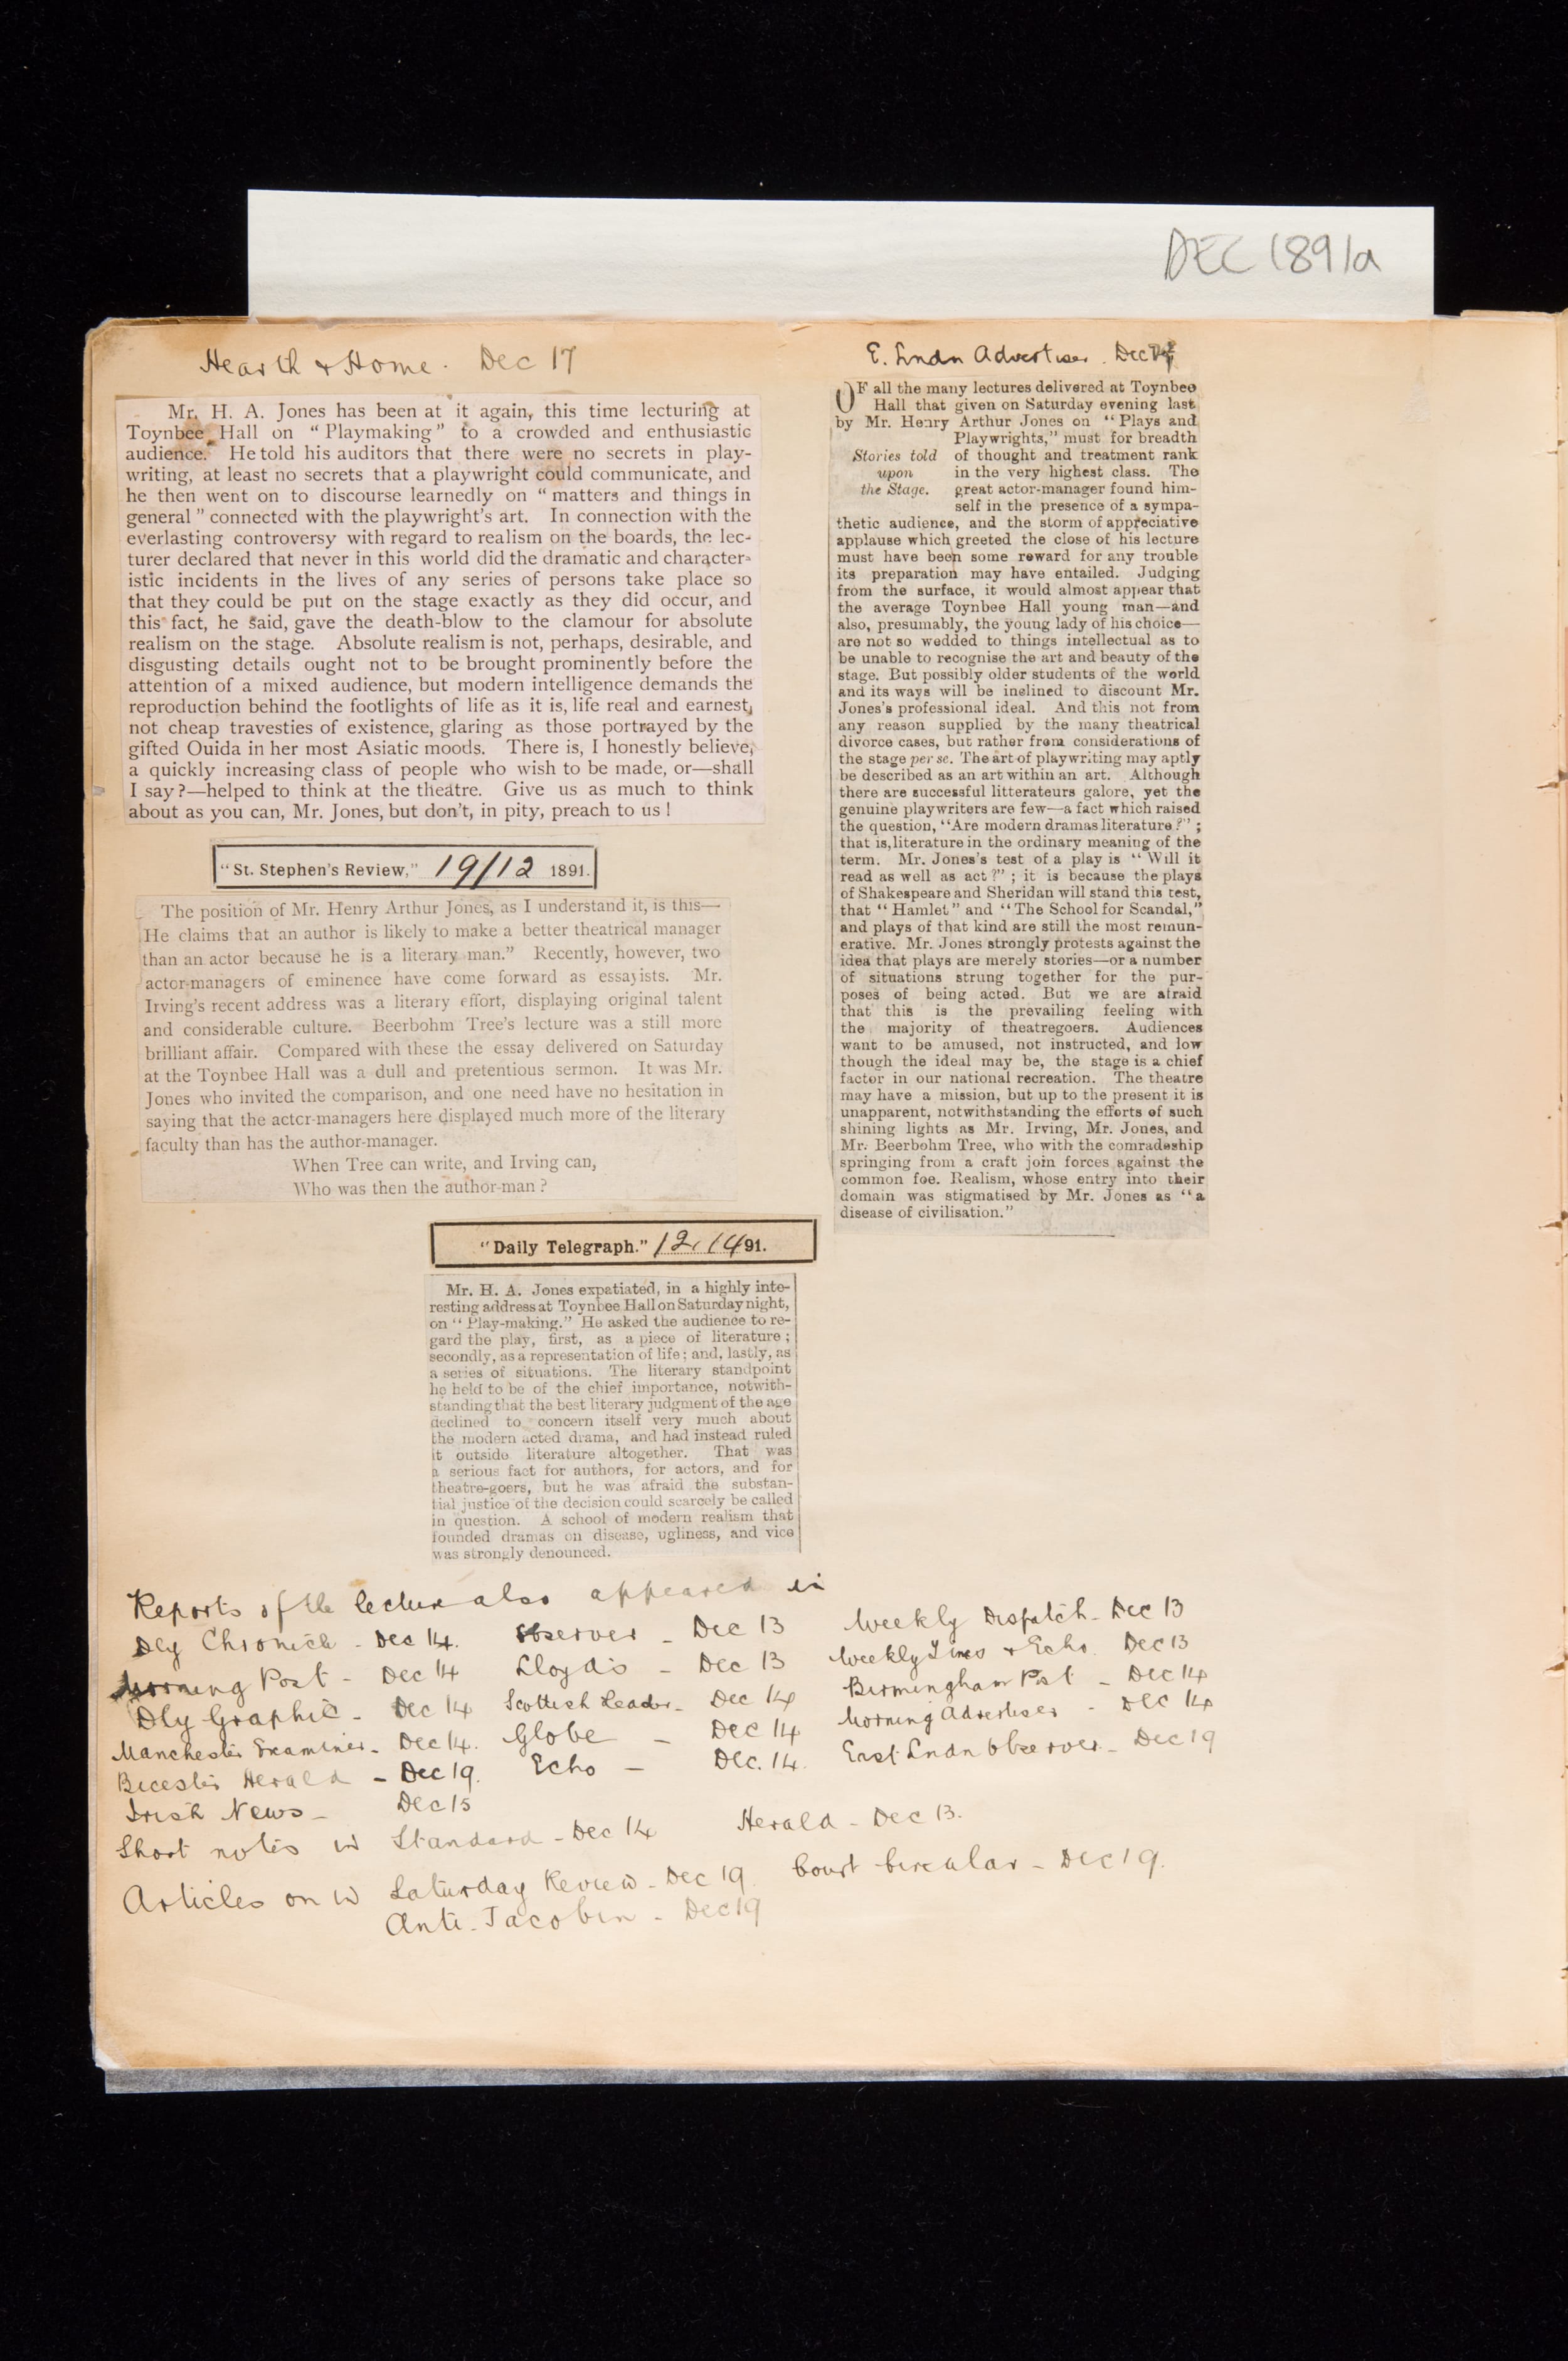 DEC 1891a
Hearth & Home. Dec 17
Mr. H. A. Jones has been at it again, this time lecturing at
Toynbee Hall on “Playmaking” to a crowded and enthusiastic
audience. He told his auditors that there were no secrets in play-
writing, at least no secrets that a playwright could communicate, and
he then went on to discourse learnedly on “matters and things in
general” connected with the playwright's art. In connection with the
everlasting controversy with regard to realism on the boards, the lec-
turer declared that never in this world did the dramatic and character-
istic incidents in the lives of any series of persons take place so
that they could be put on the stage exactly as they did occur, and
this fact, he said, gave the death-blow to the clamour for absolute
realism on the stage. Absolute realism is not, perhaps, desirable, and
disgusting details ought not to be brought prominently before the
attention of a mixed audience, but modern intelligence demands the
reproduction behind the footlights of life as it is, life real and earnest,
not cheap travesties of existence, glaring as those portrayed by the
gifted Ouida in her most Asiatic moods. There is, I honestly believe,
a quickly increasing class of people who wish to be made, or—shall
I say?—helped to think at the theatre. Give us as much to think
about as you can, Mr. Jones, but don't, in pity, preach to us!
“St. Stephen's Review,” 19/12 1891.
The position of Mr. Henry Arthur Jones, as I understand it, is this—
He claims that an author is likely to make a better theatrical manager
than an actor because he is a literary man.” Recently, however, two
actor-managers of eminence have come forward as essayists. Mr.
Irving's recent address was a literary effort, displaying original talent
and considerable culture. Beerbohm Tree's lecture was a still more
brilliant affair. Compared with these the essay delivered on Saturday
at the Toynbee Hall was a dull and pretentious sermon. It was Mr.
Jones who invited the comparison, and one need have no hesitation in
saying that the actor-managers here displayed much more of the literary
faculty than has the author-manager.
When Tree can write, and Irving can,
Who was then the author-man?
“Daily Telegraph.” 12.14 91.
Mr. H. A. Jones expatiated, in a highly inte-
resting address at Toynbee Hall on Saturday night,
on “Play-making.” He asked the audience to re-
gard the play, first, as a piece of literature;
secondly, as a representation of life; and, lastly, as
a series of situations. The literary standpoint
he held to be of the chief importance, notwith-
standing that the best literary judgment of the age
declined to concern itself very much about
the modern acted drama, and had instead ruled
it outside literature altogether. That was
a serious fact for authors, for actors, and for
theatre-goers, but he was afraid the substan-
tial justice of the decision could scarcely be called
in question. A school of modern realism that
founded dramas on disease, ugliness, and vice
was strongly denounced.
E. Lndn Advertiser. Dec
OF all the many lectures delivered at Toynbee
Hall that given on Saturday evening last
by Mr. Henry Arthur Jones on “Plays and
Playwrights,” must for breadth
Stories told of thought and treatment rank
upon in the very highest class. The
the Stage. great actor-manager found him-
self in the presence of a sympa-
thetic audience, and the storm of appreciative
applause which greeted the close of his lecture
must have been some reward for any trouble
its preparation may have entailed. Judging
from the surface, it would almost appear that
the average Toynbee Hall young man—and
also, presumably, the young lady of his choice—
are not so wedded to things intellectual as to
be unable to recognise the art and beauty of the
stage. But possibly older students of the world
and its ways will be inclined to discount Mr.
Jones's professional ideal. And this not from
any reason supplied by the many theatrical
divorce cases, but rather from considerations of
the stage per se. The art of playwriting may aptly
be described as an art within an art. Although
there are successful litterateurs galore, yet the
genuine playwriters are few—a fact which raised
the question, “Are modern dramas literature?”;
that is, literature in the ordinary meaning of the
term. Mr. Jones's test of a play is “Will it
read as well as act?”; it is because the plays
of Shakespeare and Sheridan will stand this test,
that “Hamlet” and “The School for Scandal,”
and plays of that kind are still the most remun-
erative. Mr. Jones strongly protests against the
idea that plays are merely stories—or a number
of situations strung together for the pur-
poses of being acted. But we are afraid
that this is the prevailing feeling with
the majority of theatregoers. Audiences
want to be amused, not instructed, and low
though the ideal may be, the stage is a chief
factor in our national recreation. The theatre
may have a mission, but up to the present it is
unapparent, notwithstanding the efforts of such
shining lights as Mr. Irving, Mr. Jones, and
Mr. Beerbohm Tree, who with the comradeship
springing from a craft join forces against the
common foe. Realism, whose entry into their
domain was stigmatised by Mr. Jones as “a
disease of civilisation.”
Reports of the lecture also appeared in
Dly Chronicle - Dec 14. Observer - Dec 13 Weekly Dispatch - Dec 13
Morning Post - Dec 14 Lloyds - Dec 13 Weekly Times & Echo. Dec 13
Dly Graphic - Dec 14 Scottish Leader - Dec 14 Birmingham Post - Dec 14
Manchester Examiner - Dec 14. Globe - Dec 14 Morning Advertiser - Dec 14
Bicester Herald - Dec 19. Echo - Dec. 14. East Lndn Observer - Dec 19
Irish News - Dec 15
Short notes in Standard - Dec 14 Herald - Dec 13.
Articles on in Saturday Review - Dec 19. Court Circular - Dec 19.
Anti-Jacobin - Dec 19